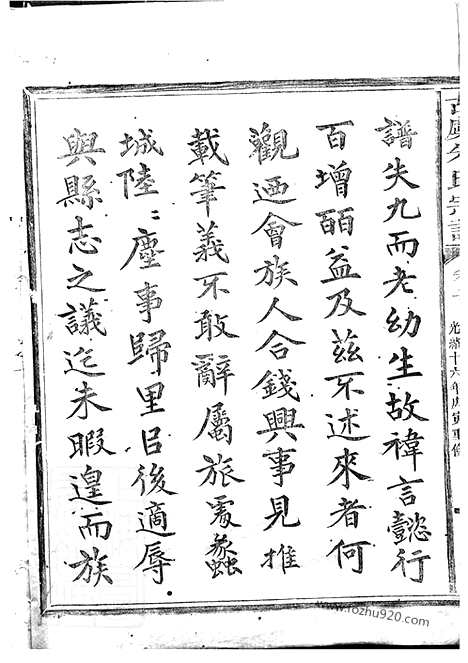 譜失九而老幼生故褘言懿行
百增皕益及茲不述來者何
觀迺會族人合錢興事見推
載筆義不敢辭屬旅寓蠡
城陸〻塵事歸里㠯後適辱
與縣志之議迄未暇遑而族
氏宗譜
光緒十六年庚寅重修
www.fozhu920.com